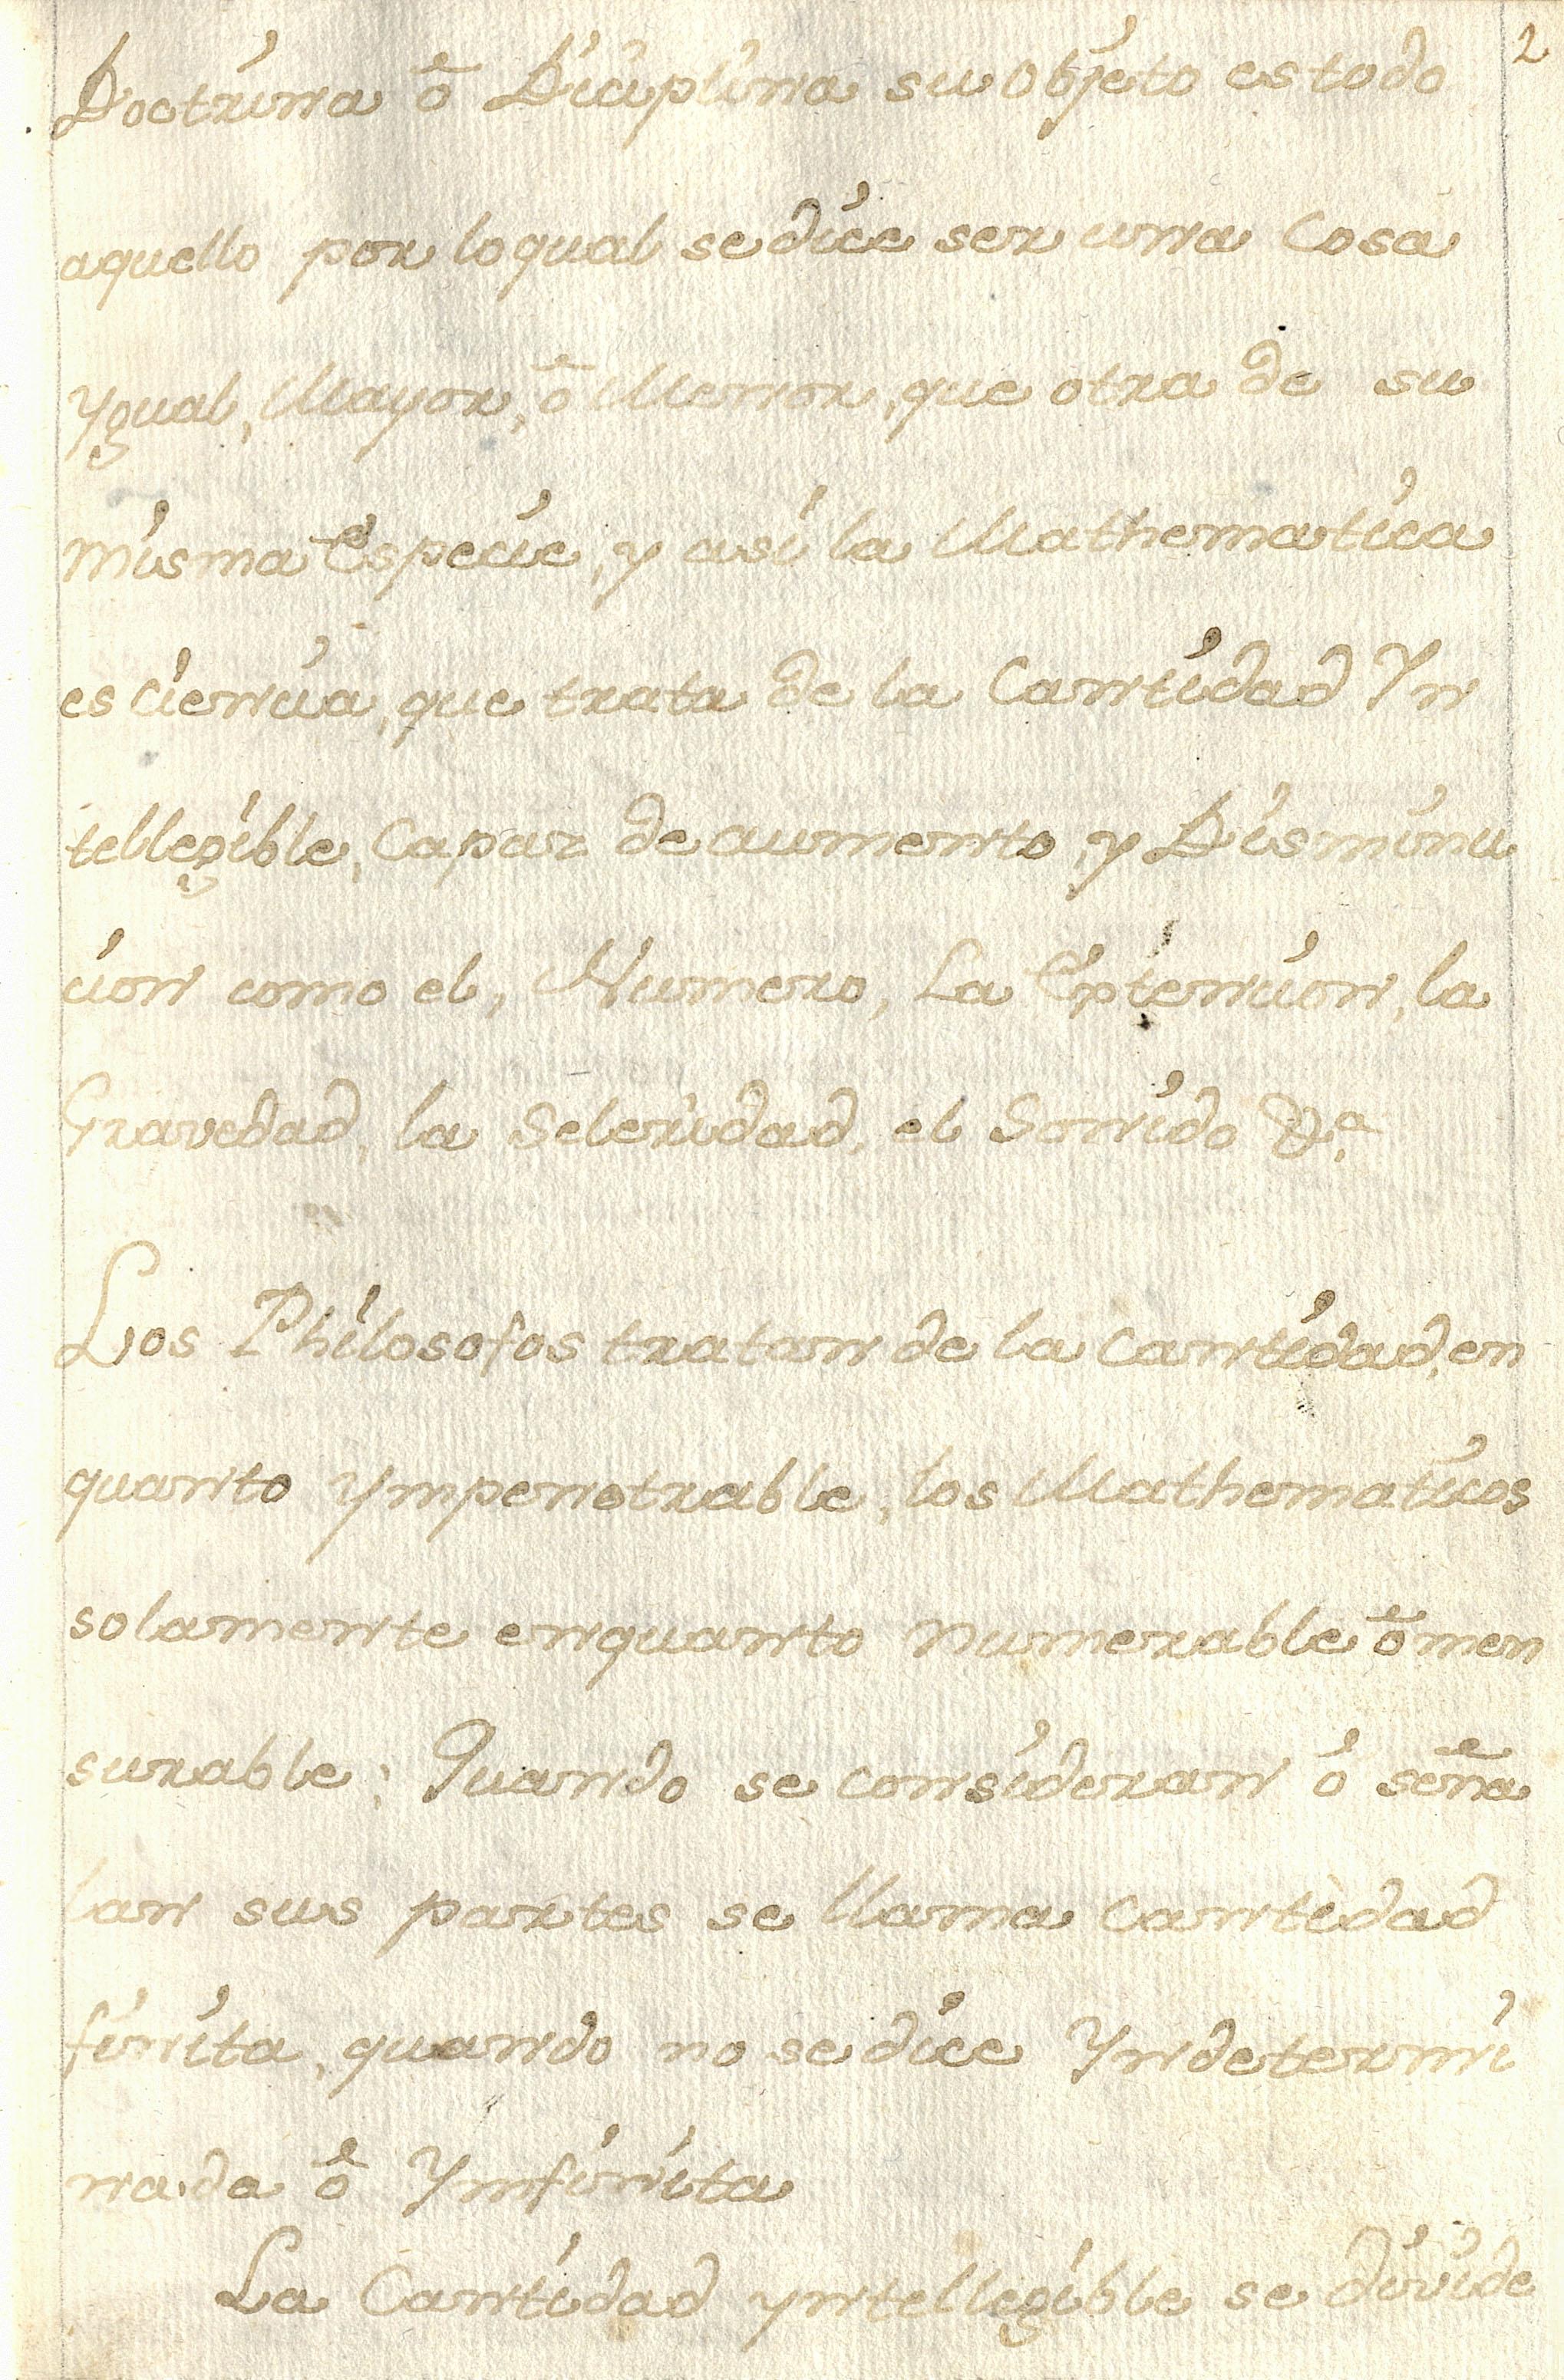 2
Doctrina ô Diciplina su objeto es todo
aquello por lo qual se dice ser una Cosa
Ygual, Mayor, ô Menor, que otra de su
misma Especie, y asi la Mathematica
es ciencia, que trata de la Cantidad Yn
tellegible, Capaz de aumento, y Disminu
cion como el, Numero, La Extencion, la
Gravedad, la Seleridad, el Sonido &.a
Los Philosofos tratan de la Cantidad, en
quanto Ympenetrable, los Mathematicos
solamente enquanto numerable ô men
surable; Quando se consideran ó seña
lan sus partes se llama Cantidad
finita, quando no se dice Yndetermi
nada ô Ymfinita
La Cantidad yntellegible se divide